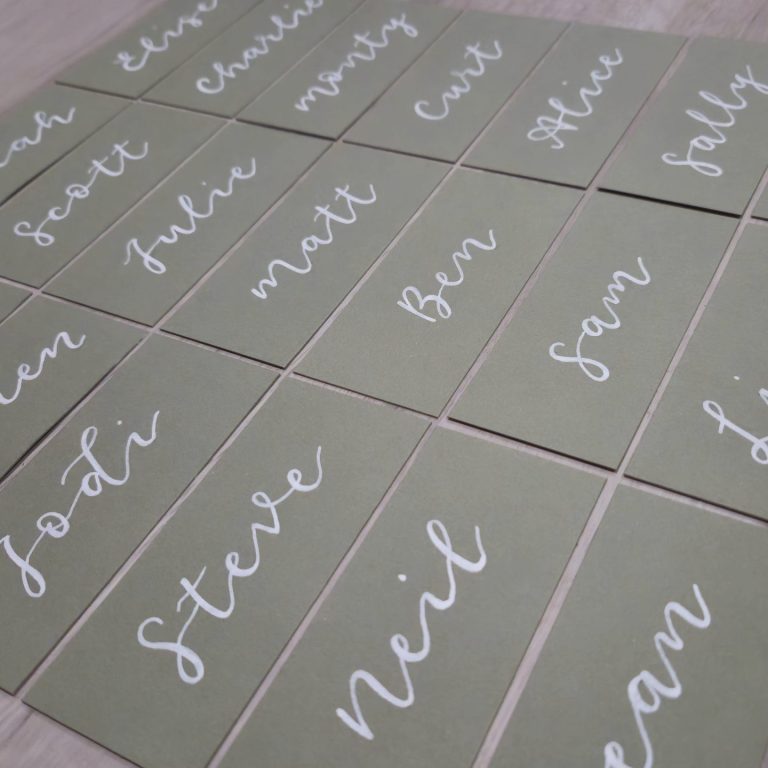 Elise
Charlie
monty
Curt
Alice
Sally
Scott
Julie
matt
Ben
Sam
Jodi
Steve
neil